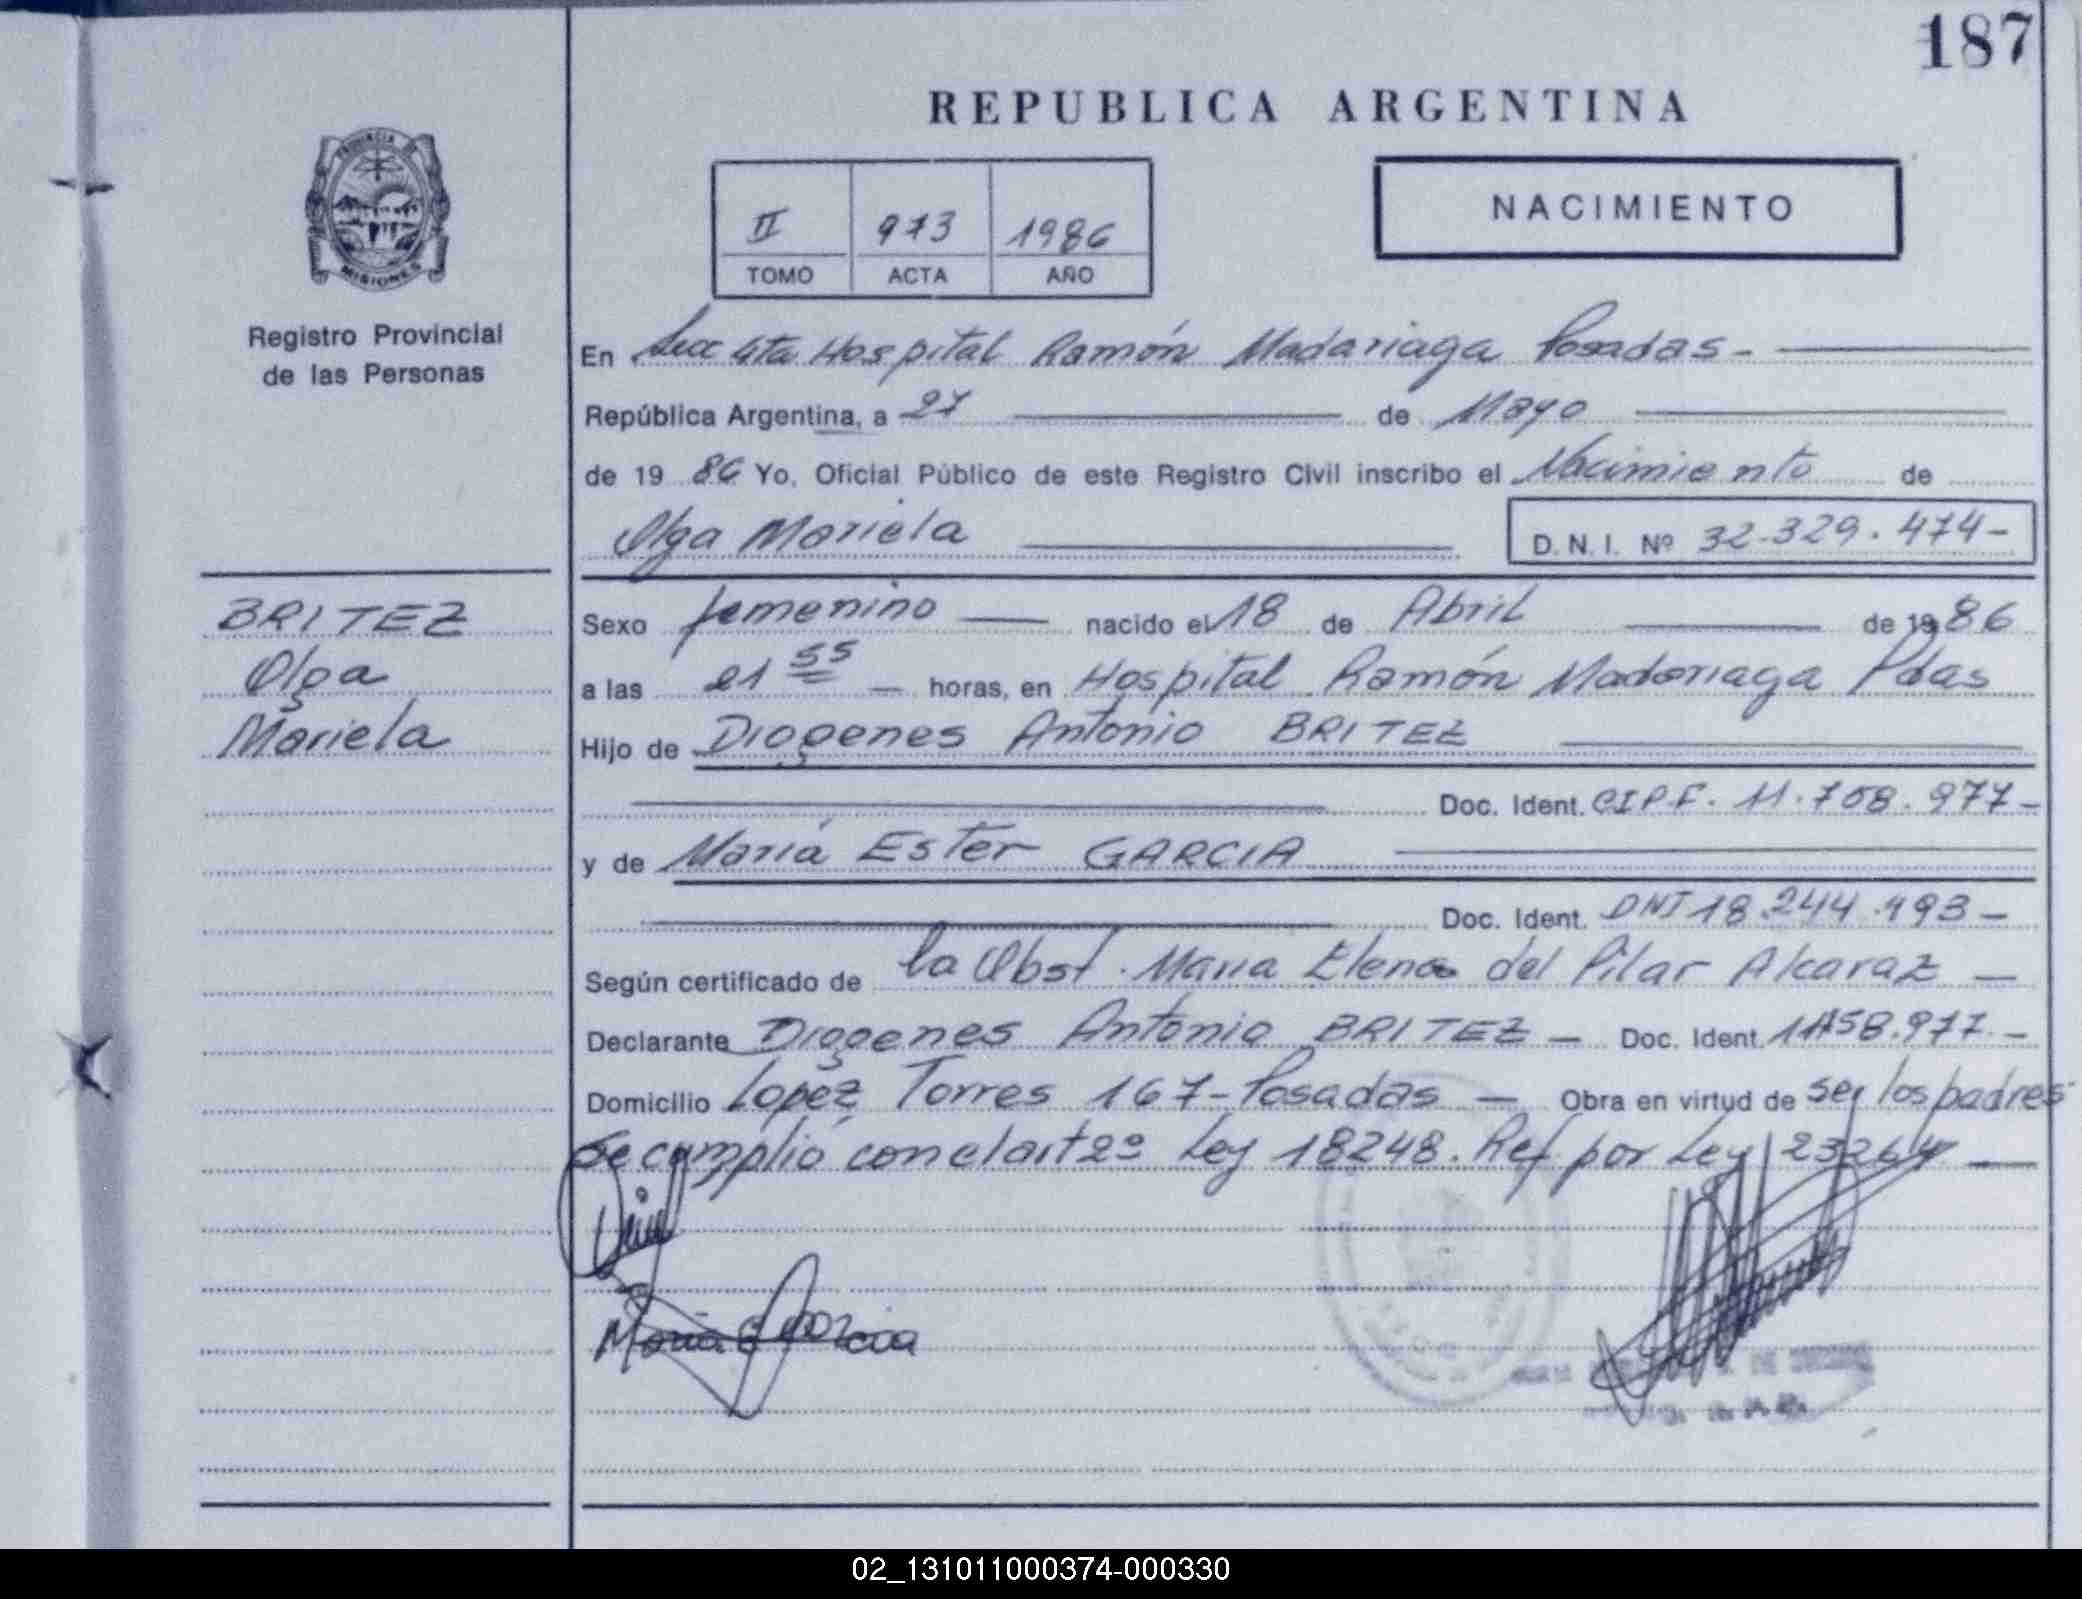 187
REPUBLICA ARGENTINA
PROVINCIA DE
MISIONES
Registro Provincial
de las Personas
II 973 1986
TOMO ACTA AÑO
NACIMIENTO
En Secc 4ta Hospital Ramón Madariaga Posadas -
República Argentina, a 27 de Mayo
de 19 86 Yo, Oficial Público de este Registro Civil inscribo el Nacimiento de
Olga Mariela D. N. I. Nº 32.329.474-
BRITEZ
Olga
Mariela
Sexo femenino nacido el 18 de Abril de 1986
a las 21 55 horas, en Hospital Ramón Madariaga Pdas
Hijo de Diogenes Antonio BRITEZ
Doc. Ident. CIPF. 11.758.977-
y de María Ester GARCIA
Doc. Ident. DNI 18.244.493-
Según certificado de la Obst. Maria Elena del Pilar Alcaraz
Declarante Diogenes Antonio BRITEZ - Doc. Ident. 11758.977.-
Domicilio Lopez Torres 167-Posadas - Obra en virtud de ser los padres
Se cumplió con el art 2º Ley 18248. Ref por Ley 23264
Maria E Garcia
02_131011000374-000330